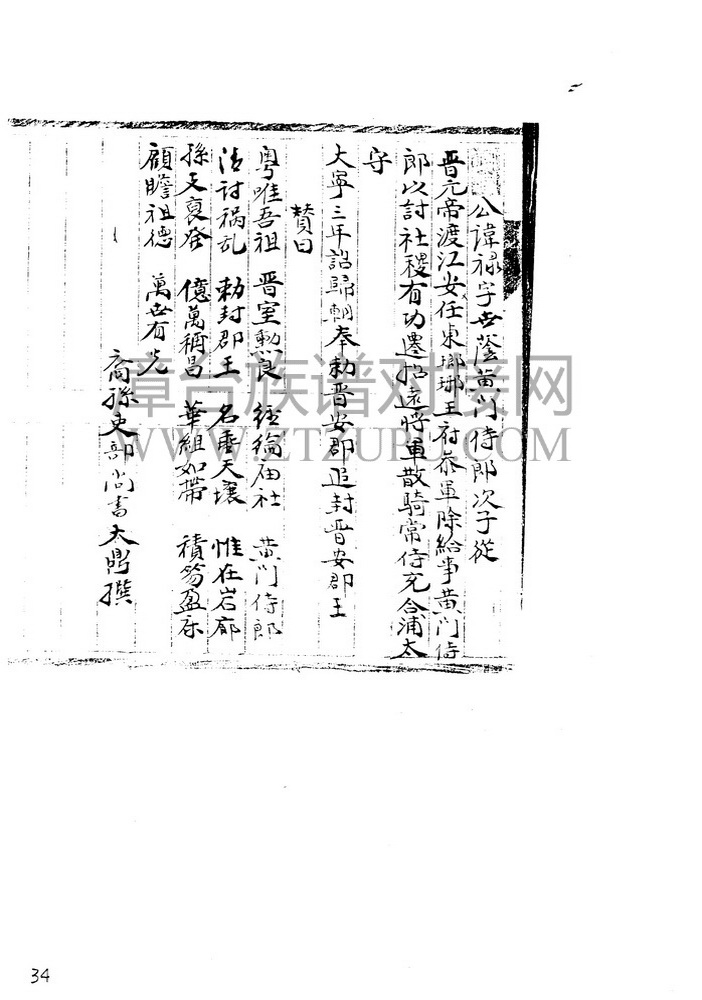 公諱禄字世蔭黄門侍郎次子從
晋元帝渡江安任東瑯琊王府叅軍除給事黄門侍
郎以討社稷有功遷招遠將軍散騎常侍充合浦太
守
大寧三年詔歸朝奉勅晋安郡追封晋安郡王
賛曰
粤唯吾祖 晋室勳良 經綸 社 黄門侍郎
法討祸乱 勅封郡王 名垂天壤 惟在岩廊
孫支裒發 億萬稱昌 華組如帶 積笏盈床
顧瞻祖德 萬世有光
裔孫吏部尚書太鼎撰
章台族谱对接网
WWW.ZTZUPU.COM
34